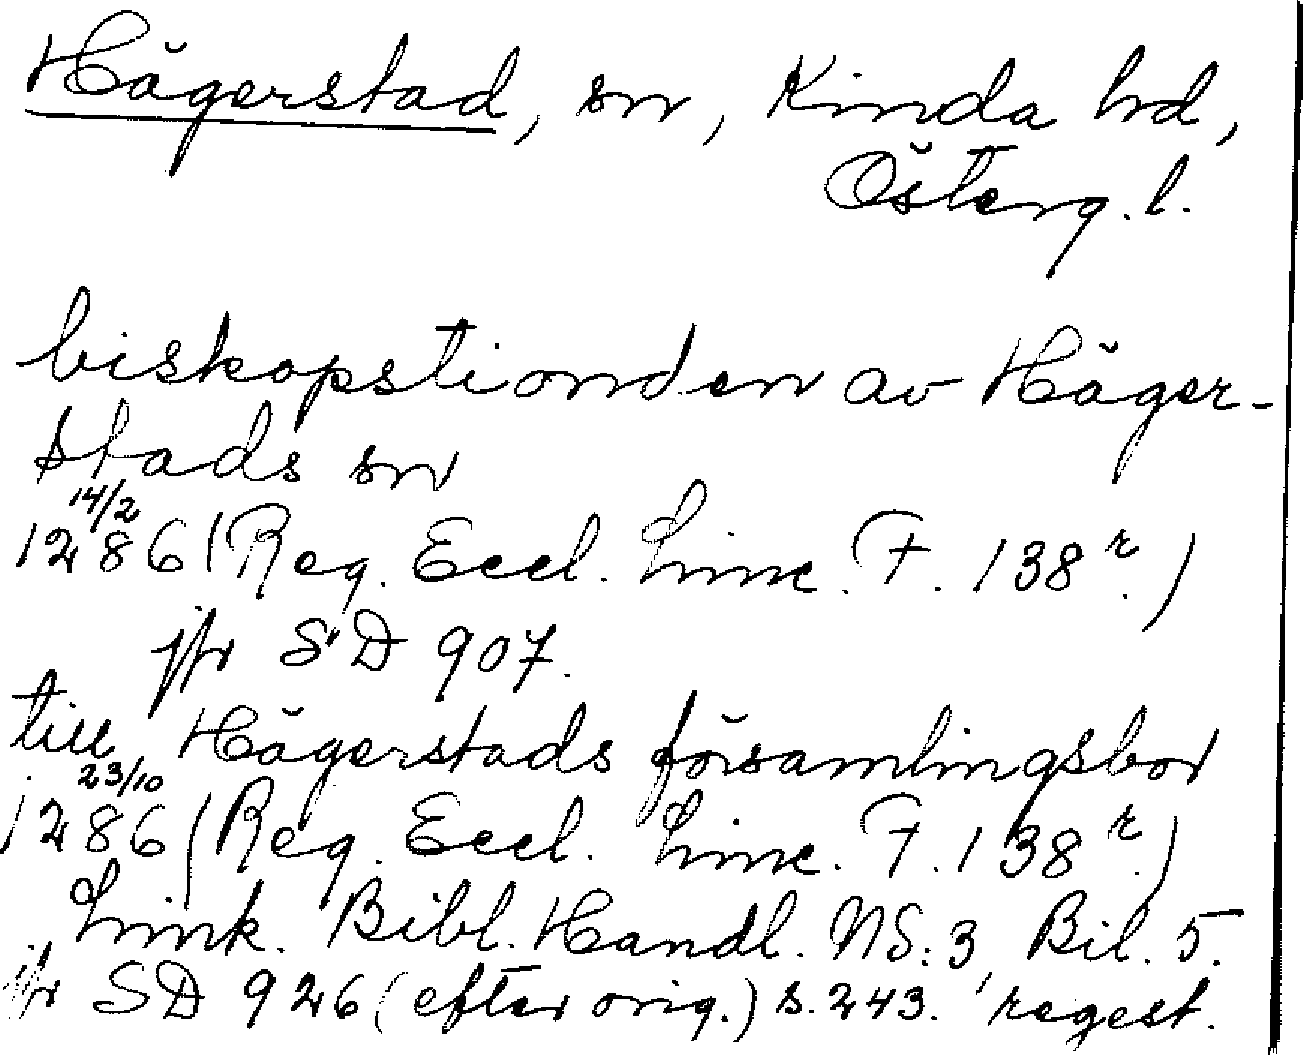 Hägerstad, sn, Kinda hd,
Österg. l.
biskopstionden av Häger-
stads sn
14/2
1286 (Reg. Eccl. Linc. F. 138 r.)
jfr SD 907.
till Hägerstads församlingsbor
23/10
1286 (Reg. Eccl. Linc. F. 138 r.)
Link. Bibl. Handl. NS: 3, Bil. 5.
jfr SD 926 (efter orig.) s. 243. regest.